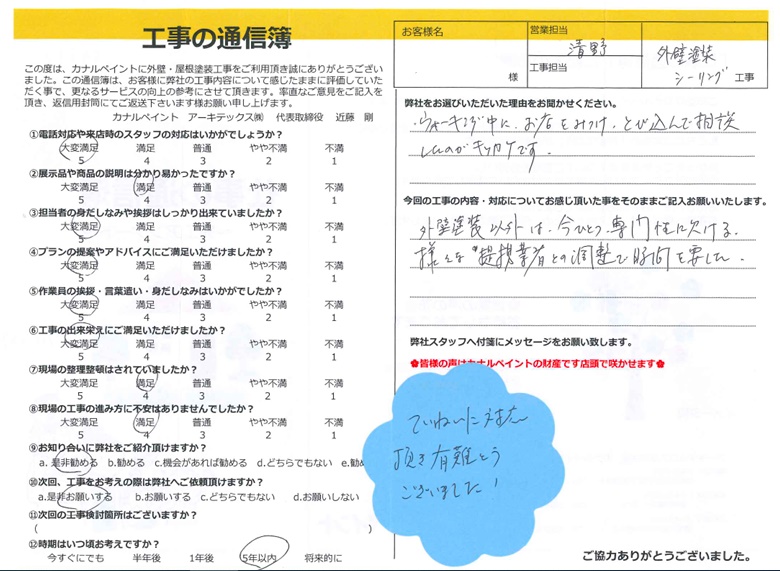 工事の通信簿
この度は、カナルペイントに外壁・屋根塗装工事をご利用頂き誠にありがとうござい
ました。この通信簿は、お客様に弊社の工事内容について感じたままに評価していた
だく事で、更なるサービスの向上の参考にさせて頂きます。率直なご意見をご記入を
頂き、返信用封筒にてご返送下さいます様お願い申し上げます。
カナルペイント アーキテックス㈱ 代表取締役 近藤 剛
①電話対応や来店時のスタッフの対応はいかがでしょうか?
大変満足 満足 普通 やや不満 不満
5 4 3 2 1
②展示品や商品の説明は分かり易かったですか?
大変満足 満足 普通 やや不満 不満
5 4 3 2 1
③担当者の身だしなみや挨拶はしっかり出来ていましたか?
大変満足 満足 普通 やや不満 不満
5 4 3 2 1
④プランの提案やアドバイスにご満足いただけましたか?
大変満足 満足 普通 やや不満 不満
5 4 3 2 1
⑤作業員の挨拶・言葉遣い・身だしなみはいかがでしたか?
大変満足 満足 普通 やや不満 不満
5 4 3 2 1
⑥工事の出来栄えにご満足いただけましたか?
大変満足 満足 普通 やや不満 不満
5 4 3 2 1
⑦現場の整理整頓はされていましたか?
大変満足 満足 普通 やや不満 不満
5 4 3 2 1
⑧現場の工事の進み方に不安はありませんでしたか?
大変満足 満足 普通 やや不満 不満
5 4 3 2 1
⑨お知り合いに弊社をご紹介頂けますか?
a. 是非勧める b.勧める c.機会があれば勧める d.どちらでもない e.勧め
⑩次回、工事をお考えの際は弊社へご依頼頂けますか?
a.是非お願いする b.お願いする c.どちらでもない d.お願いしない
⑪次回の工事検討箇所はございますか?
( )
⑫時期はいつ頃お考えですか?
今すぐにでも 半年後 1年後 5年以内 将来的に
お客様名
様
営業担当
清野
工事担当
外壁塗装
シーリング 工事
弊社をお選びいただいた理由をお聞かせください。
・ウォーキング中に、お店をみつけ、とび込んで相談
したのがキッカケです。
今回の工事の内容・対応についてお感じ頂いた事をそのままご記入お願いいたします。
外壁塗装以外は、今ひとつ専門性に欠ける。
様々な"提携業者との調整で時間を要した。
弊社スタッフへ付箋にメッセージをお願い致します。
✿皆様の声はカナルペイントの財産です店頭で咲かせます✿
ていねいに対応
頂き有難とう
ございました!
ご協力ありがとうございました。